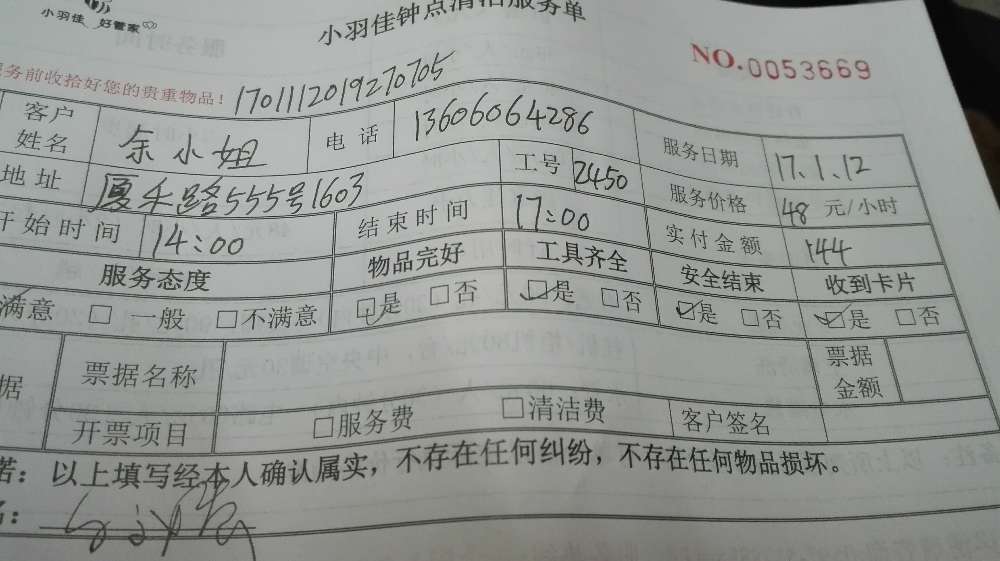 小羽佳 好管家
小羽佳钟点清洁服务单
NO.0053669
务前收拾好您的贵重物品！ 1701112019270705
客户姓名 余小姐 电话 13606064286 服务日期 17.1.12
地址 厦禾路555号1603 工号 2450 服务价格 48 元/小时
开始时间 14:00 结束时间 17:00 实付金额 144
服务态度 物品完好 工具齐全 安全结束 收到卡片
满意 □ 一般 □不满意 ☑是 □否 ☑是 □否 ☑是 □否 ☑是 □否
据 票据名称 票据金额
开票项目 □服务费 □清洁费 客户签名
诺：以上填写经本人确认属实，不存在任何纠纷，不存在任何物品损坏。